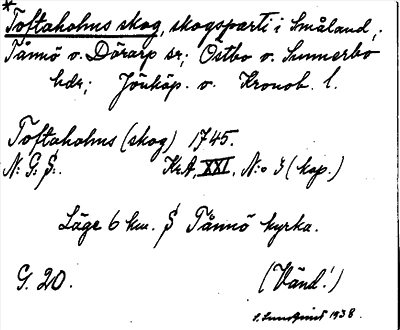 *
Toftaholms skog, skogsparti i Småland,
Tånnö o. Dörarp sr; Östbo o. Sunnerbo
hdr; Jönköp. o. Kronob. l.
Toftaholms (skog) 1745.
N: G: S:. KrA, XXI, N:o 3 (kop.)
Läge 6 km. S Tånnö kyrka.
G. 20. (Vänd!)
S. Sundqvist 1938.